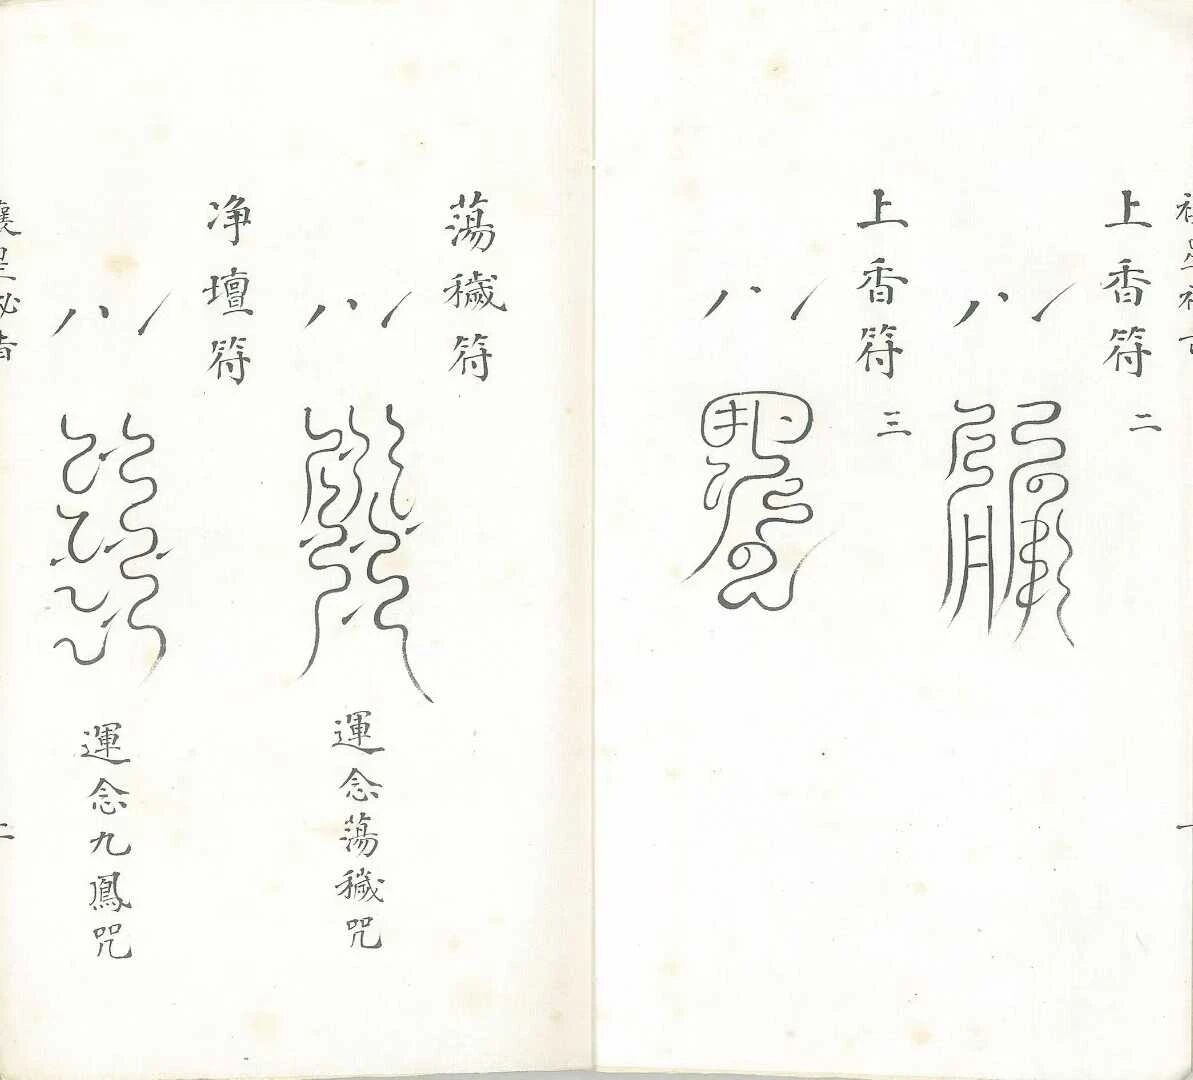 上香符 二
上香符 三
蕩穢符
運念蕩穢咒
净壇符
運念九鳳咒
二